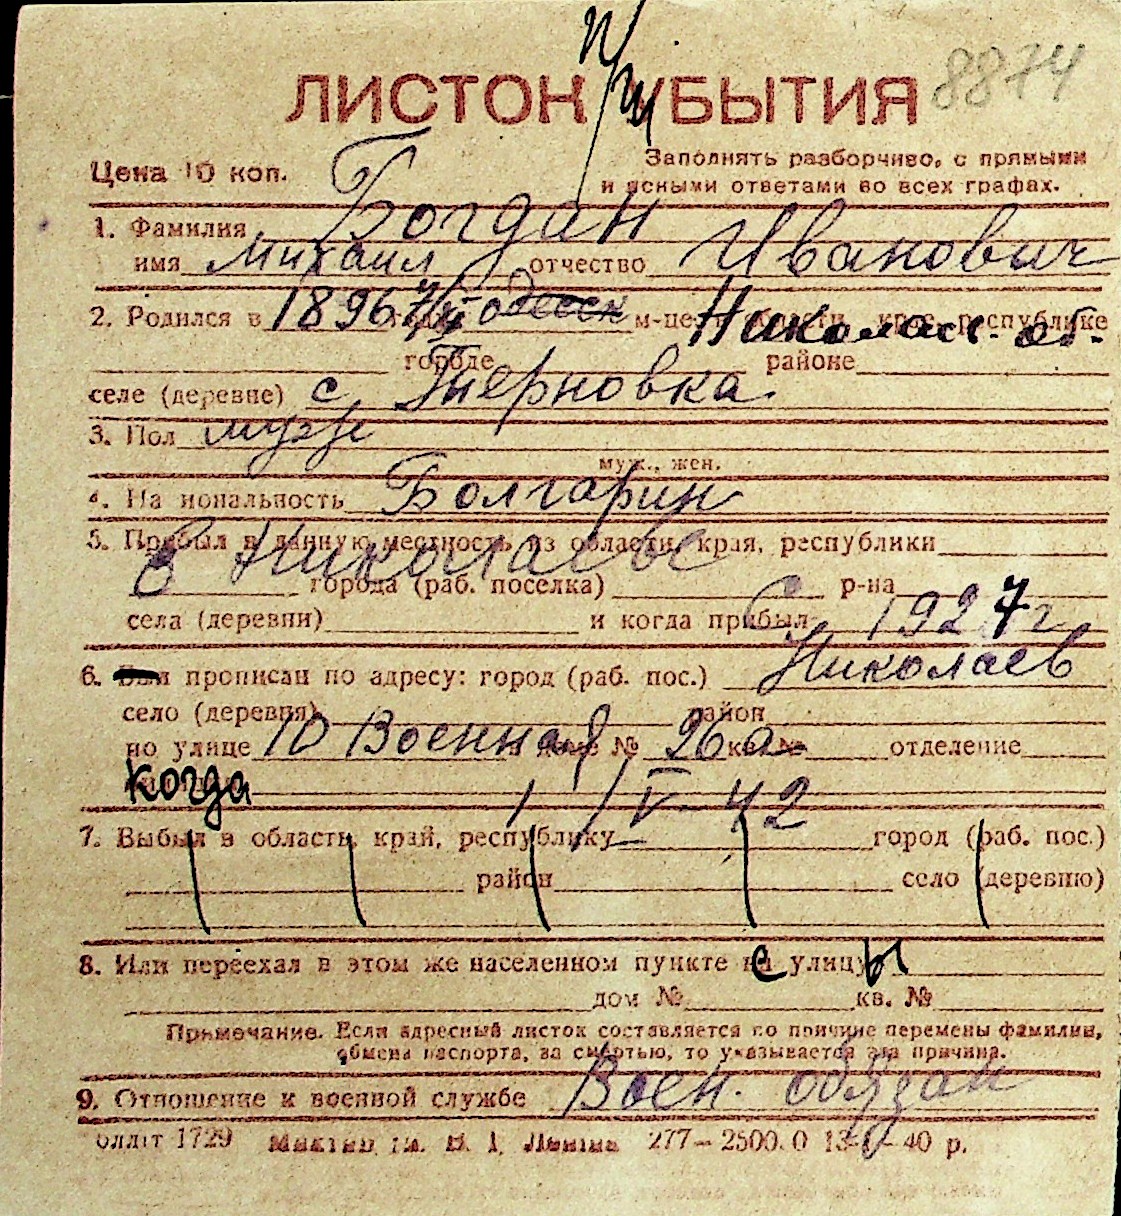 8874
п/п
ЛИСТОК УБЫТИЯ
Цена 10 коп.
Заполнять разборчиво, с прямыми
и ясными ответами во всех графах.
1. Фамилия Богдан
имя Михаил отчество Иванович
2. Родился в 1896 7/V Одесск м-це области, крае, республике Николаев. об.
городе районе
селе (деревне) с. Терновка.
3. Пол муж
муж., жен.
4. На иональность Болгарин
5. Прибыл в данную местность из области, края, республики
в Николаеве города (раб. поселка) р-на
села (деревни) и когда прибыл с 1927 г
6. прописан по адресу: город (раб. пос.) Николаев
село (деревня) район
по улице 10 Военная доме № 26 а кв. № отделение
когда 1/V-42
7. Выбыл в область, край, республику город (раб. пос.)
район село (деревню)
8. Или переехал в этом же населенном пункте с улицы
дом № кв. №
Примечание. Если адресный листок составляется по причине перемены фамилии,
обмена паспорта, за смертью, то указывается эта причина.
9. Отношение к военной службе Воен. обязан
Облліт 1729 Ленина 277—2500.0 13-V-40 р.